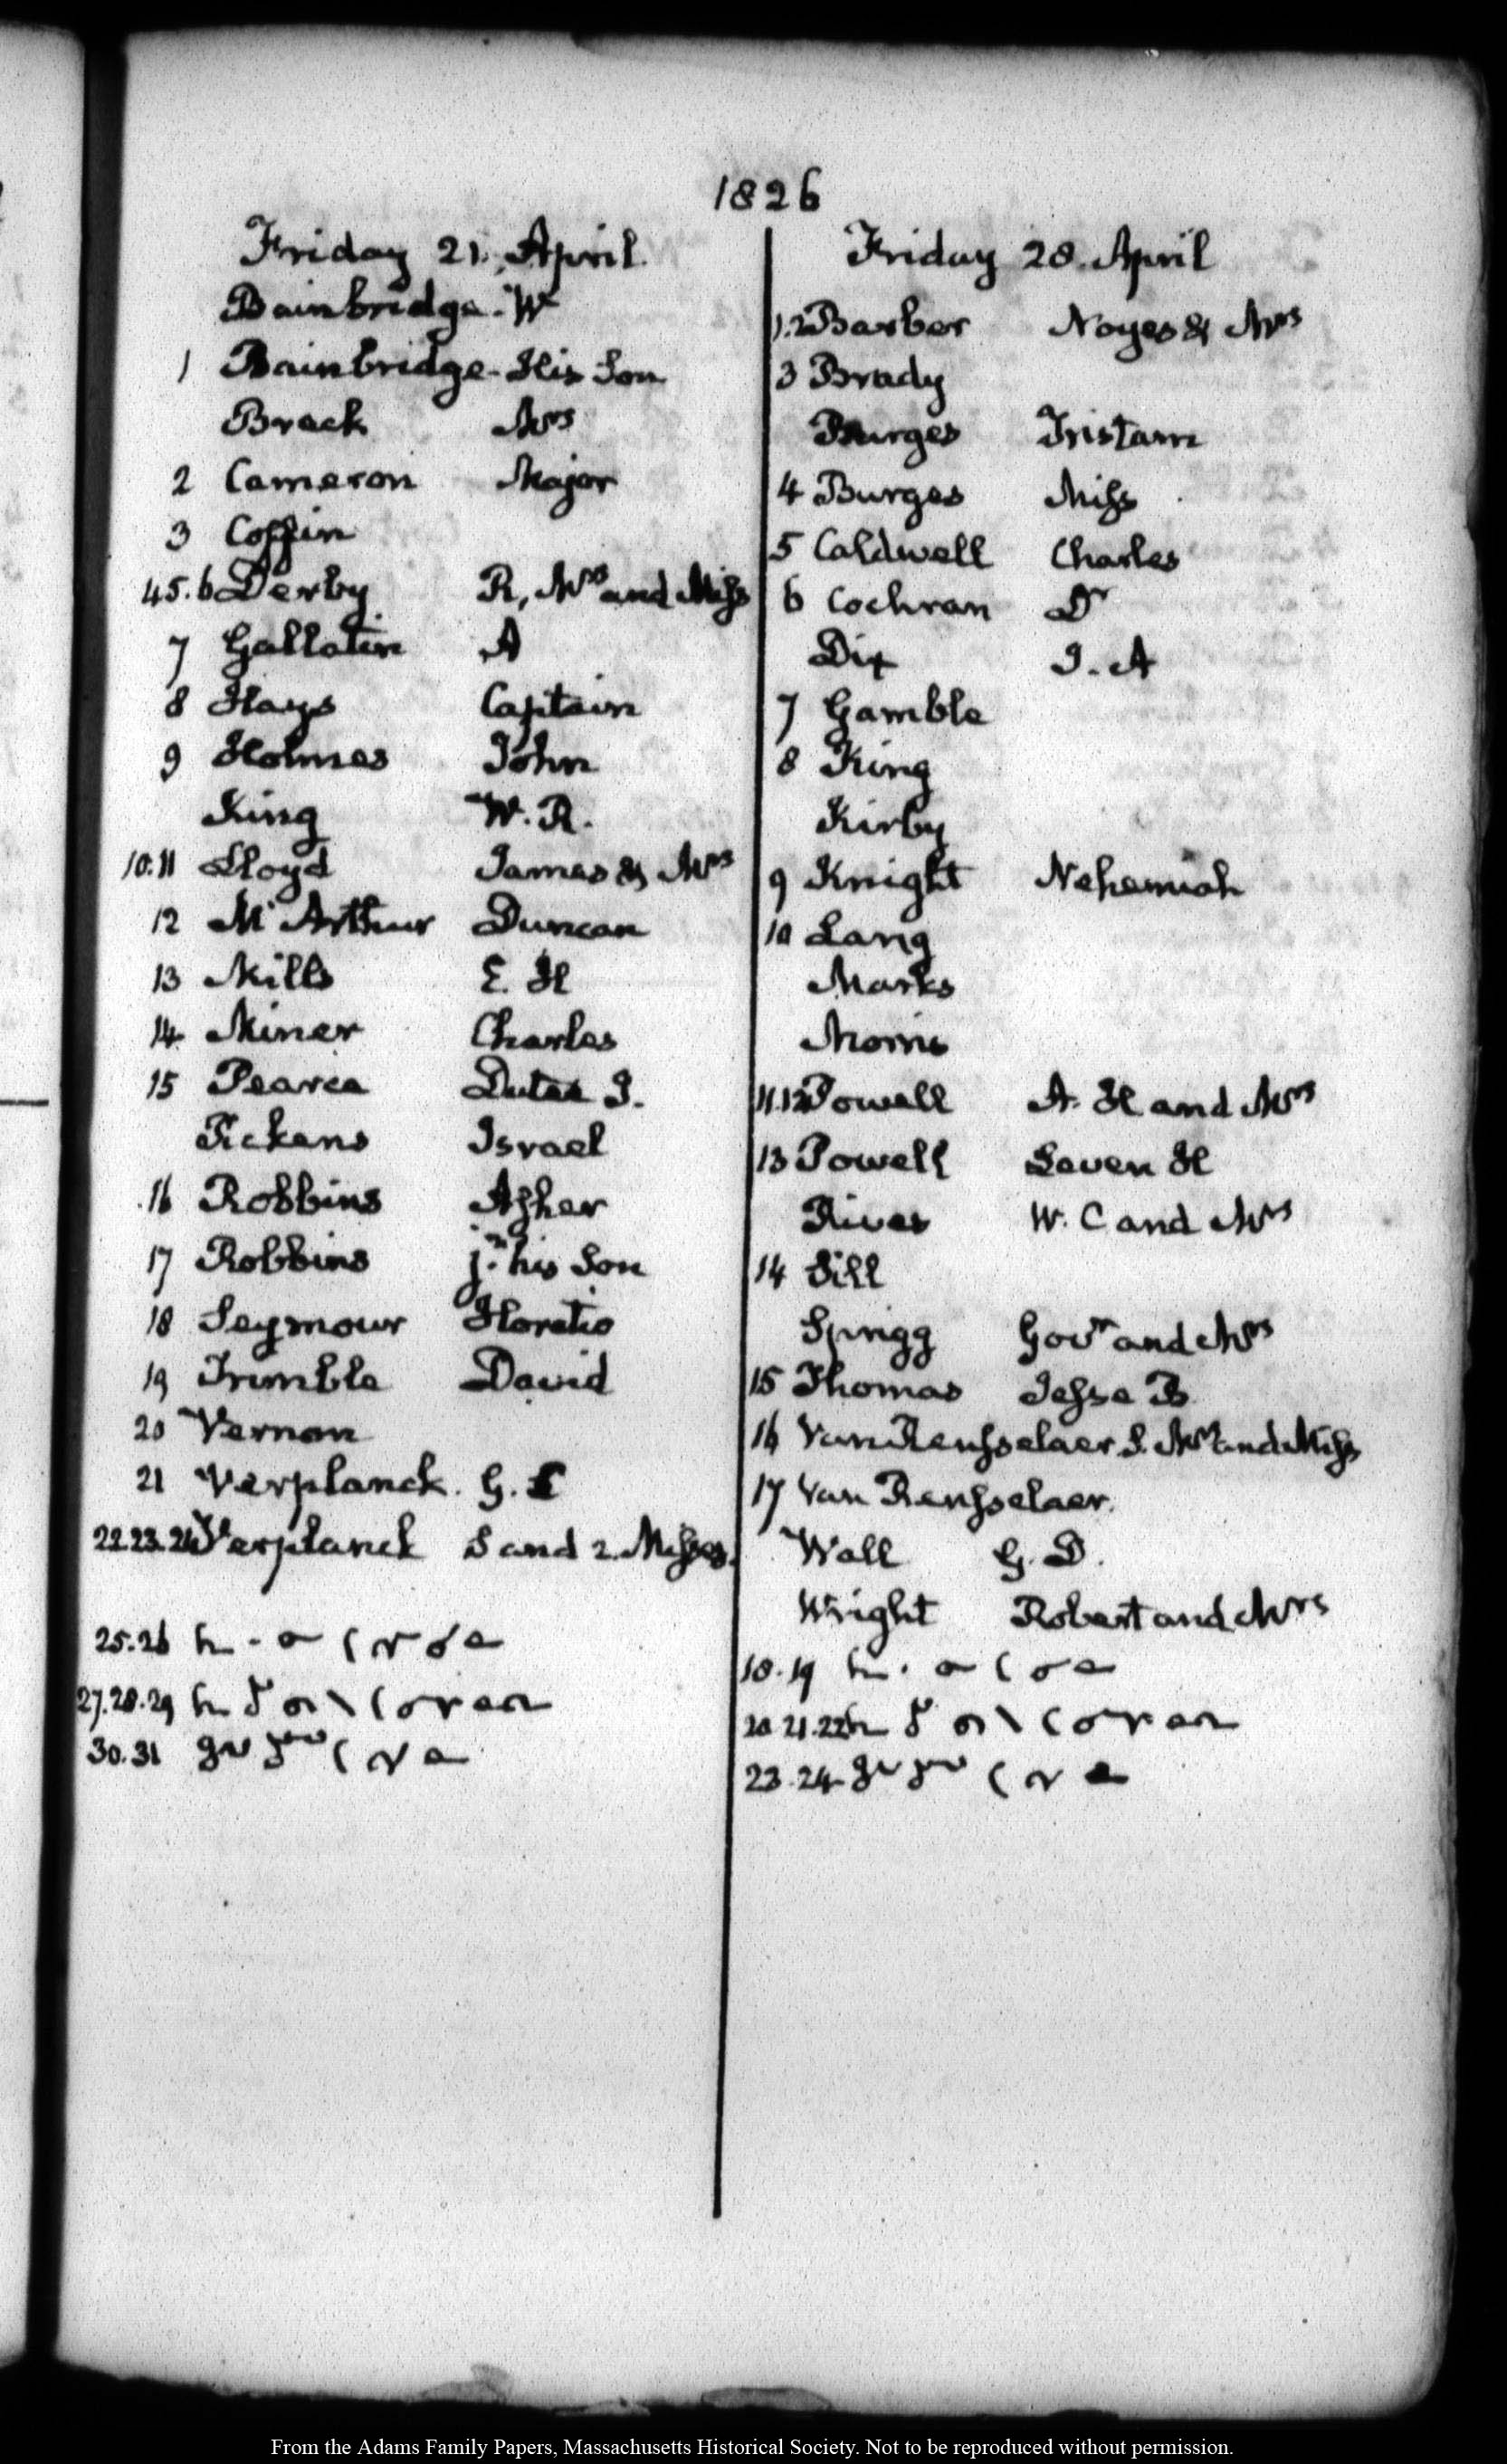 1826
Friday 21. April.
Bainbridge. W
1 Bainbridge. His Son
Breck Mrs
2 Cameron Major
3 Coffin
4.5.6 Derby R, Mrs and Miss
7 Gallatin A
8 Hays Captain
9 Holmes John
King W. R.
10.11 Lloyd James & Mrs
12 Mc Arthur Duncan
13 Mills E. H
14 Miner Charles
15 Pearce Dutee J.
Pickens Israel
16 Robbins Asher
17 Robbins jr. his Son
18 Seymour Horatio
19 Trimble David
20 Vernon
21 Verplanck. G. C
22.23.24 Verplanck S and 2. Misses.
25.26
27.28.29
30.31
Friday 28. April
1.2 Barber Noyes & Mrs
3 Brady
Burges Tristam
4 Burges Miss
5 Caldwell Charles
6 Cochran Dr
Dix J. A
7 Gamble
8 King
Kirby
9 Knight Nehemiah
10 Lang
Marks
Morris
11.12 Powell A. H and Mrs
13 Powell Leven H
Rives W. C and Mrs
14 Sill
Sprigg Govr and Mrs
15 Thomas Jesse B
16 Van Rensselaer S. Mrs and Miss
17 Van Rensselaer.
Wall G. D.
Wright Robert and Mrs
18.19
20 21.22
23.24
From the Adams Family Papers, Massachusetts Historical Society. Not to be reproduced without permission.